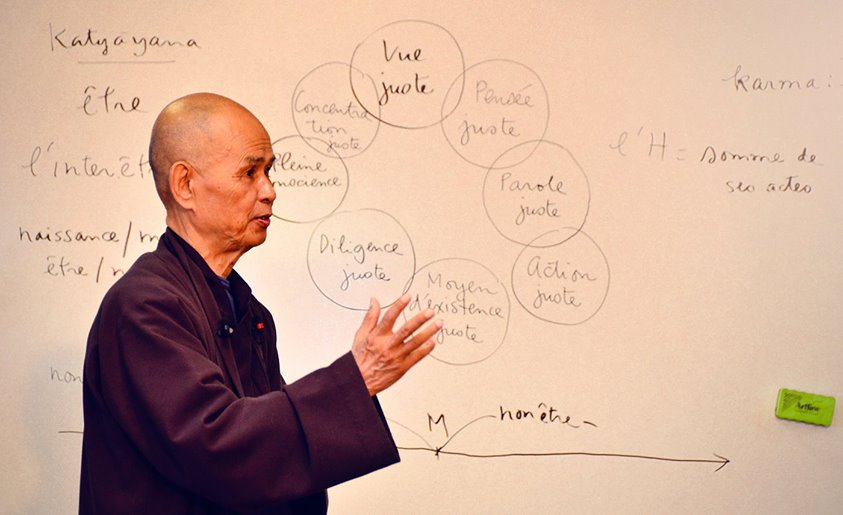 Katyayana
être
l'interêt
naissance/
être/
Vue
juste
Pensée
juste
Parole
juste
Action
juste
Moyen
d'existence
juste
Diligence
juste
Pleine
Concentra
tion
juste
karma:
l'H = somme de
ses actes
M
non être